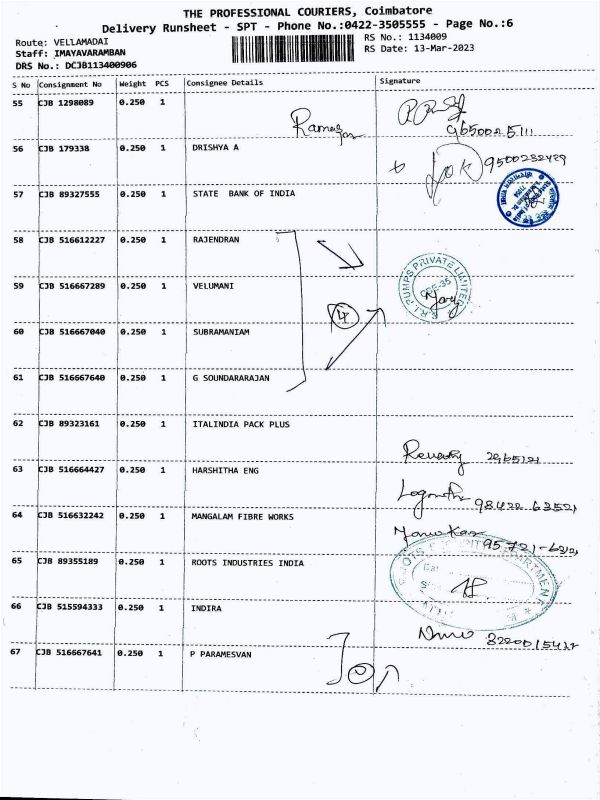 THE PROFESSIONAL COURIERS, Coimbatore
Delivery Runsheet - SPT - Phone No.:0422-3505555 - Page No.:6
Route: VELLAMADAI
Staff: IMAYAVARAMBAN
DRS No.: DCJB113400906
RS No.: 1134009
RS Date: 13-Mar-2023
S No Consignment No Weight PCS Consignee Details Signature
55 CJB 1298089 0.250 1
9650025111
56 CJB 179338 0.250 1 DRISHYA A
9500232429
57 CJB 89327555 0.250 1 STATE BANK OF INDIA
58 CJB 516612227 0.250 1 RAJENDRAN
59 CJB 516667289 0.250 1 VELUMANI
PUMPS PRIVATE LIMITED
CBE-35
4
60 CJB 516667040 0.250 1 SUBRAMANIAM
61 CJB 516667640 0.250 1 G SOUNDARARAJAN
62 CJB 89323161 0.250 1 ITALINDIA PACK PLUS
63 CJB 516664427 0.250 1 HARSHITHA ENG
64 CJB 516632242 0.250 1 MANGALAM FIBRE WORKS
65 CJB 89355189 0.250 1 ROOTS INDUSTRIES INDIA
66 CJB 515594333 0.250 1 INDIRA
67 CJB 516667641 0.250 1 P PARAMESVAN